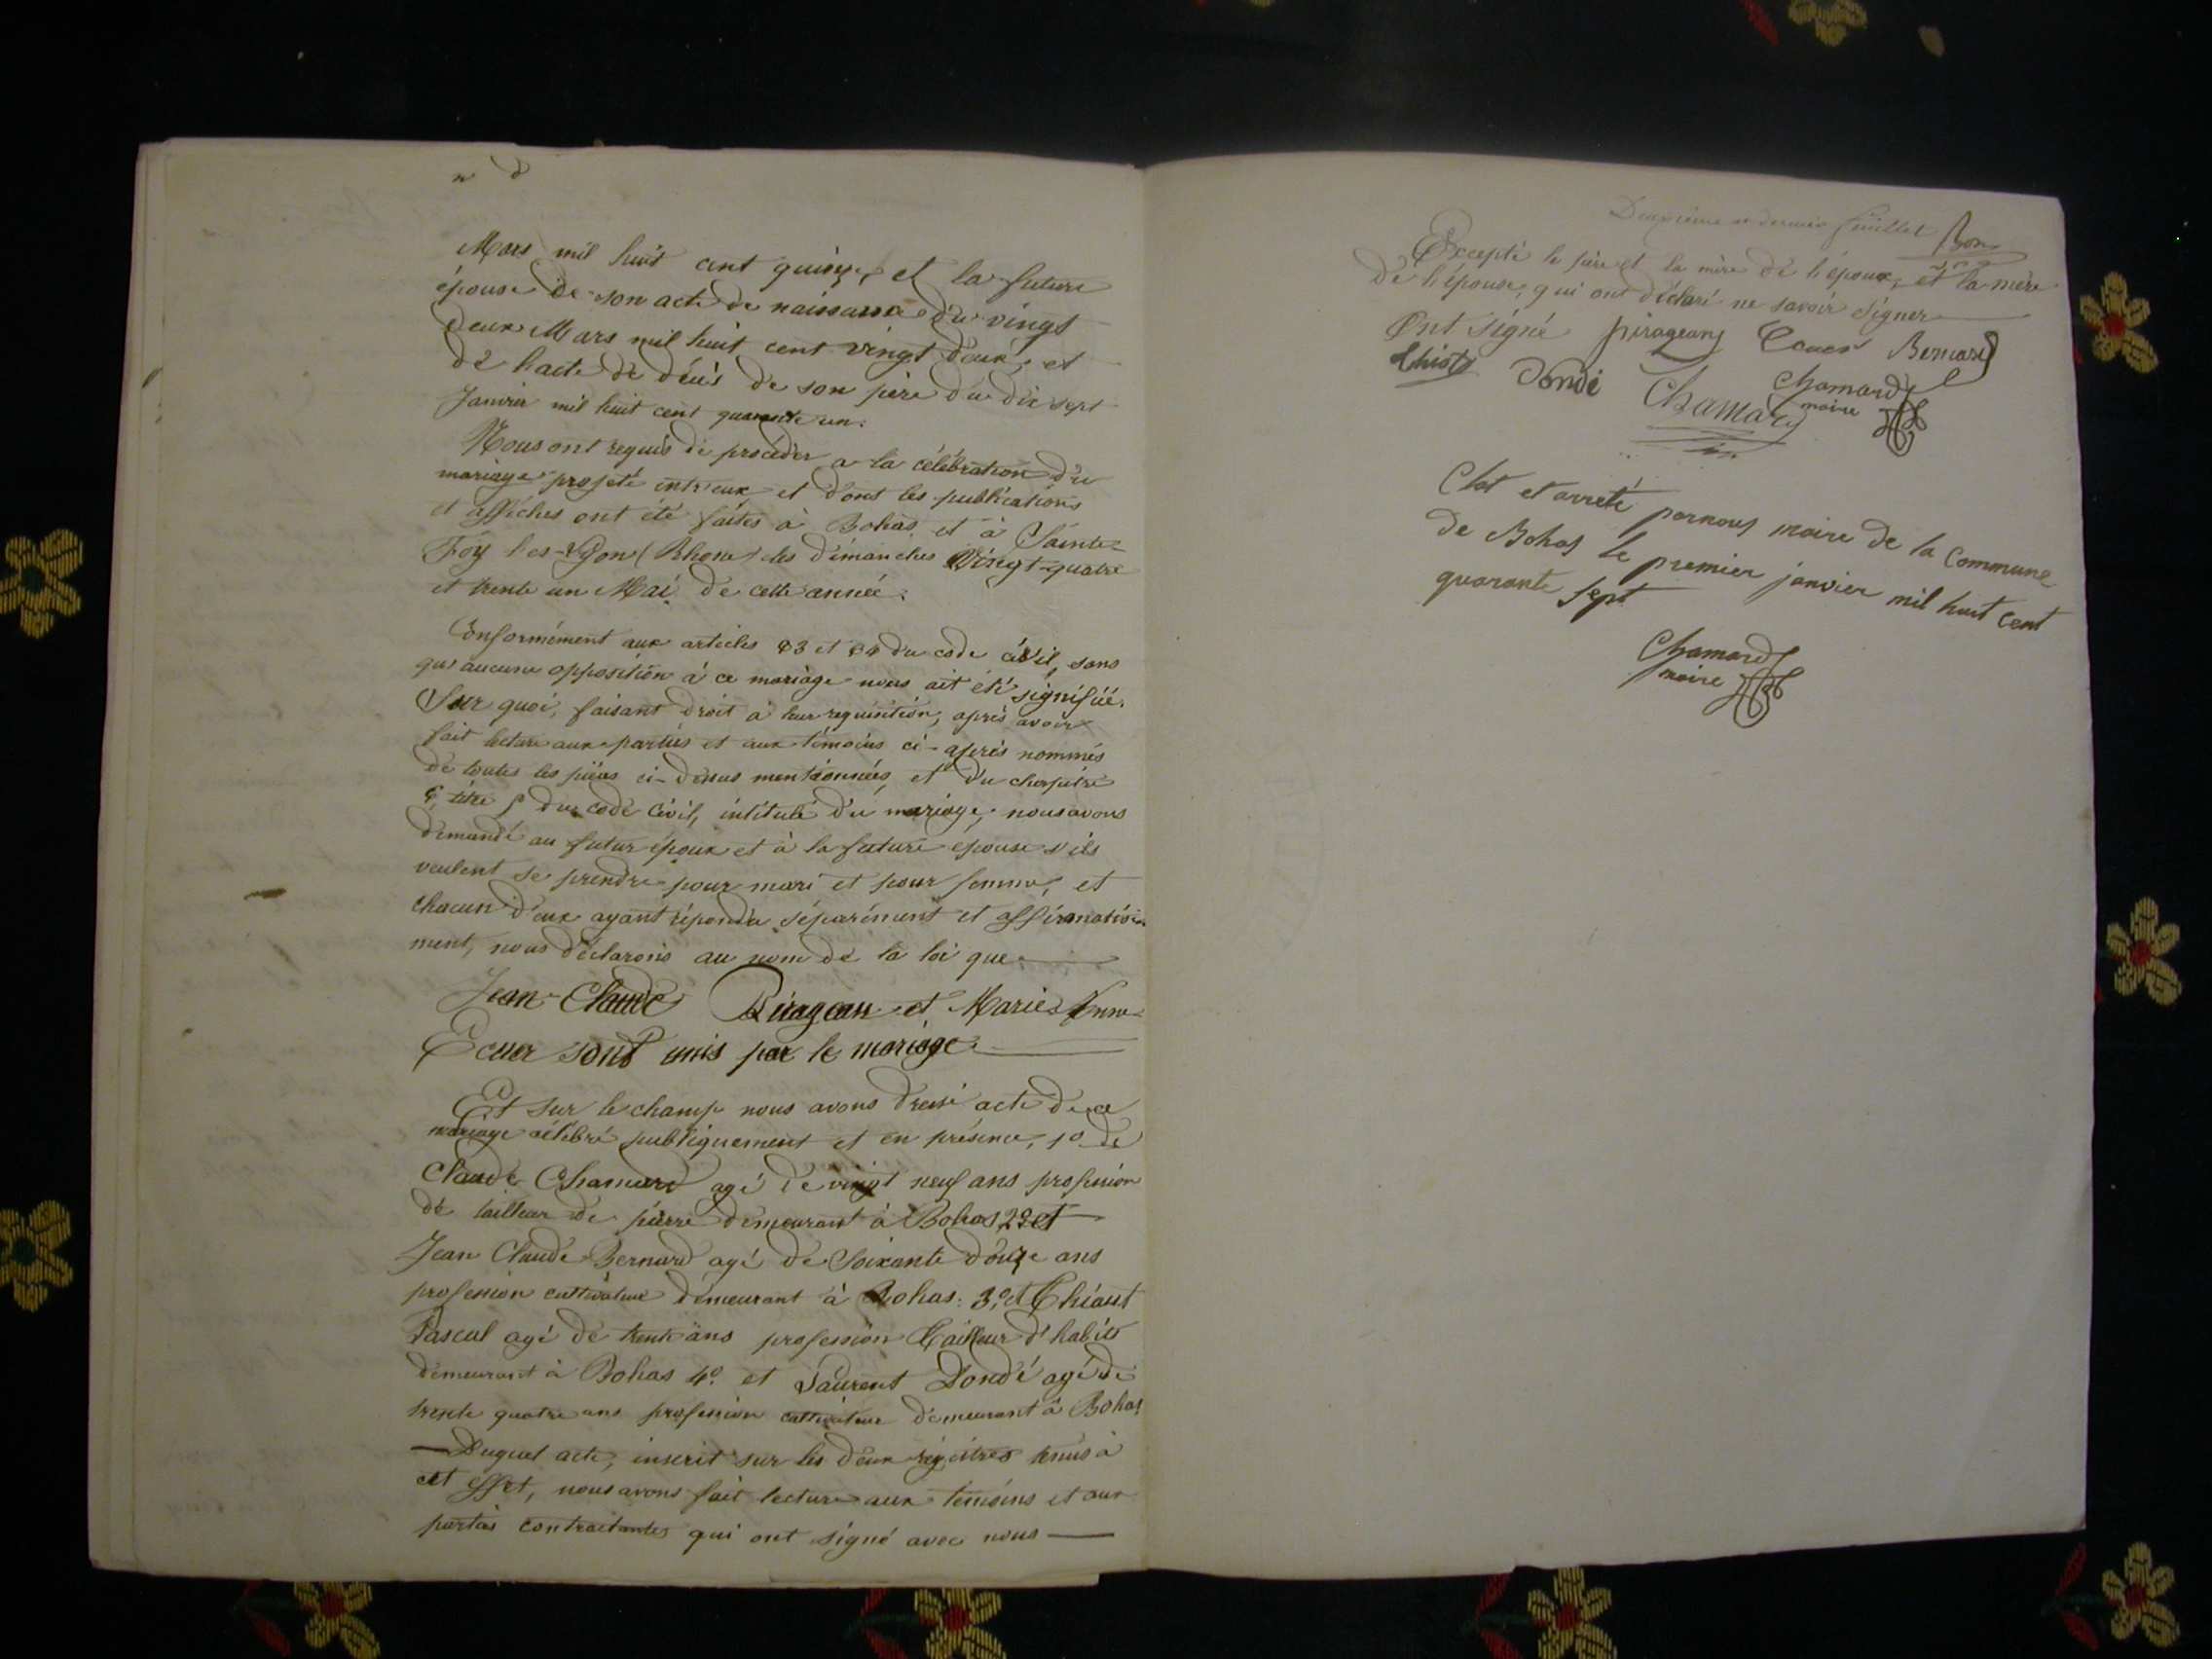 Mars mil huit cent quinze, et la future
épouse de son acte de naissance du vingt
deux Mars mil huit cent vingt deux, et
de l'acte de décès de son père du dix sept
Janvier mil huit cent quarante un.
Nous ont requis de procéder a la célébration du
mariage projeté entr'eux et dont les publications
et affiches ont été faites à Bohas et à Sainte-
Foy les-Lyon (Rhone) les dimanches Vingt-quatre
et trente un Mai de cette année.
Conformément aux articles 63 et 64 du code civil, sans
que aucune opposition à ce mariage nous ait été signifiée.
Sur quoi, faisant droit à leur requisition, après avoir
fait lecture aux parties et aux témoins ci-après nommés
de toutes les pièces ci-dessus mentionnées, et du chapitre
6, titre 5 du code civil, intitulé du mariage, nous avons
demandé au futur époux et à la future epouse s'ils
veulent se prendre pour mari et pour femme, et
chacun d'eux ayant répondu séparément et affirmative-
ment, nous déclarons au nom de la loi que
Jean-Claude Pirageau et Marie Anne
Ecuer sont unis par le mariage
Et sur le champ nous avons dressé acte de ce
mariage célébré publiquement et en présence, 1º de
Claude Chamard agé de vingt neuf ans profession
de tailleur de pierre demeurant à Bohas, 2º et
Jean Claude Bernard agé de soixante douze ans
profession cultivateur demeurant à Bohas: 3º et Chiout
Pascal agé de trente ans profession tailleur d'habits
demeurant à Bohas 4º et Laurent Dondé agé de
trente quatre ans profession cultivateur demeurant à Bohas
Duquel acte, inscrit sur les deux régistres tenus à
cet effet, nous avons fait lecture aux témoins et aux
parties contractantes qui ont signé avec nous
Deuxième et dernier feuillet
Bon
Excepté le père et la mère de l'époux, et la mère
de l'épouse, qui ont déclaré ne savoir signer
Ont signé pirageau Ecuer Bernard
Chiot Dondé Chamard Chamard
maire
Clot et arreté par nous maire de la Commune
de Bohas le premier janvier mil huit cent
quarante sept
Chamard
maire